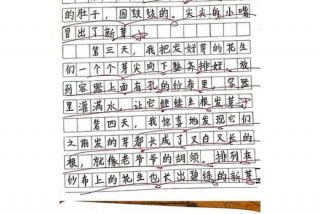 的肚子，圆鼓鼓的。尖尖的小嘴
冒出了新芽。
第三天，我把发好芽的花生
们一个个芽尖向下整齐排好，放
到容器上面有孔的纱布里，容器
里灌满水，让它继续生根发芽。
第四天，我惊喜地发现它们
又萌发的芽都长成了又白又长的
根，就像老爷爷的胡须。排列在
纱布上的花生也长出碧绿的新芽